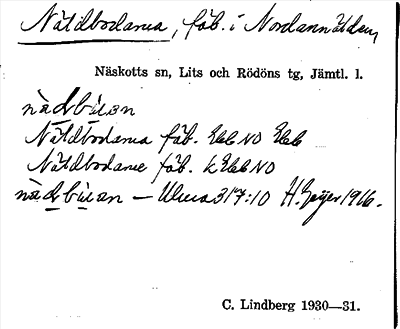 Nätdbodarna, fäb. i Nordannälden,
Näskotts sn, Lits och Rödöns tg, Jämtl. l.
nàdbùan
Nätdbodarna fäb.
Nätdbodarne fäb.
nàdbùan — Ulma 317:10 H. Geijer 1916.
C. Lindberg 1930—31.